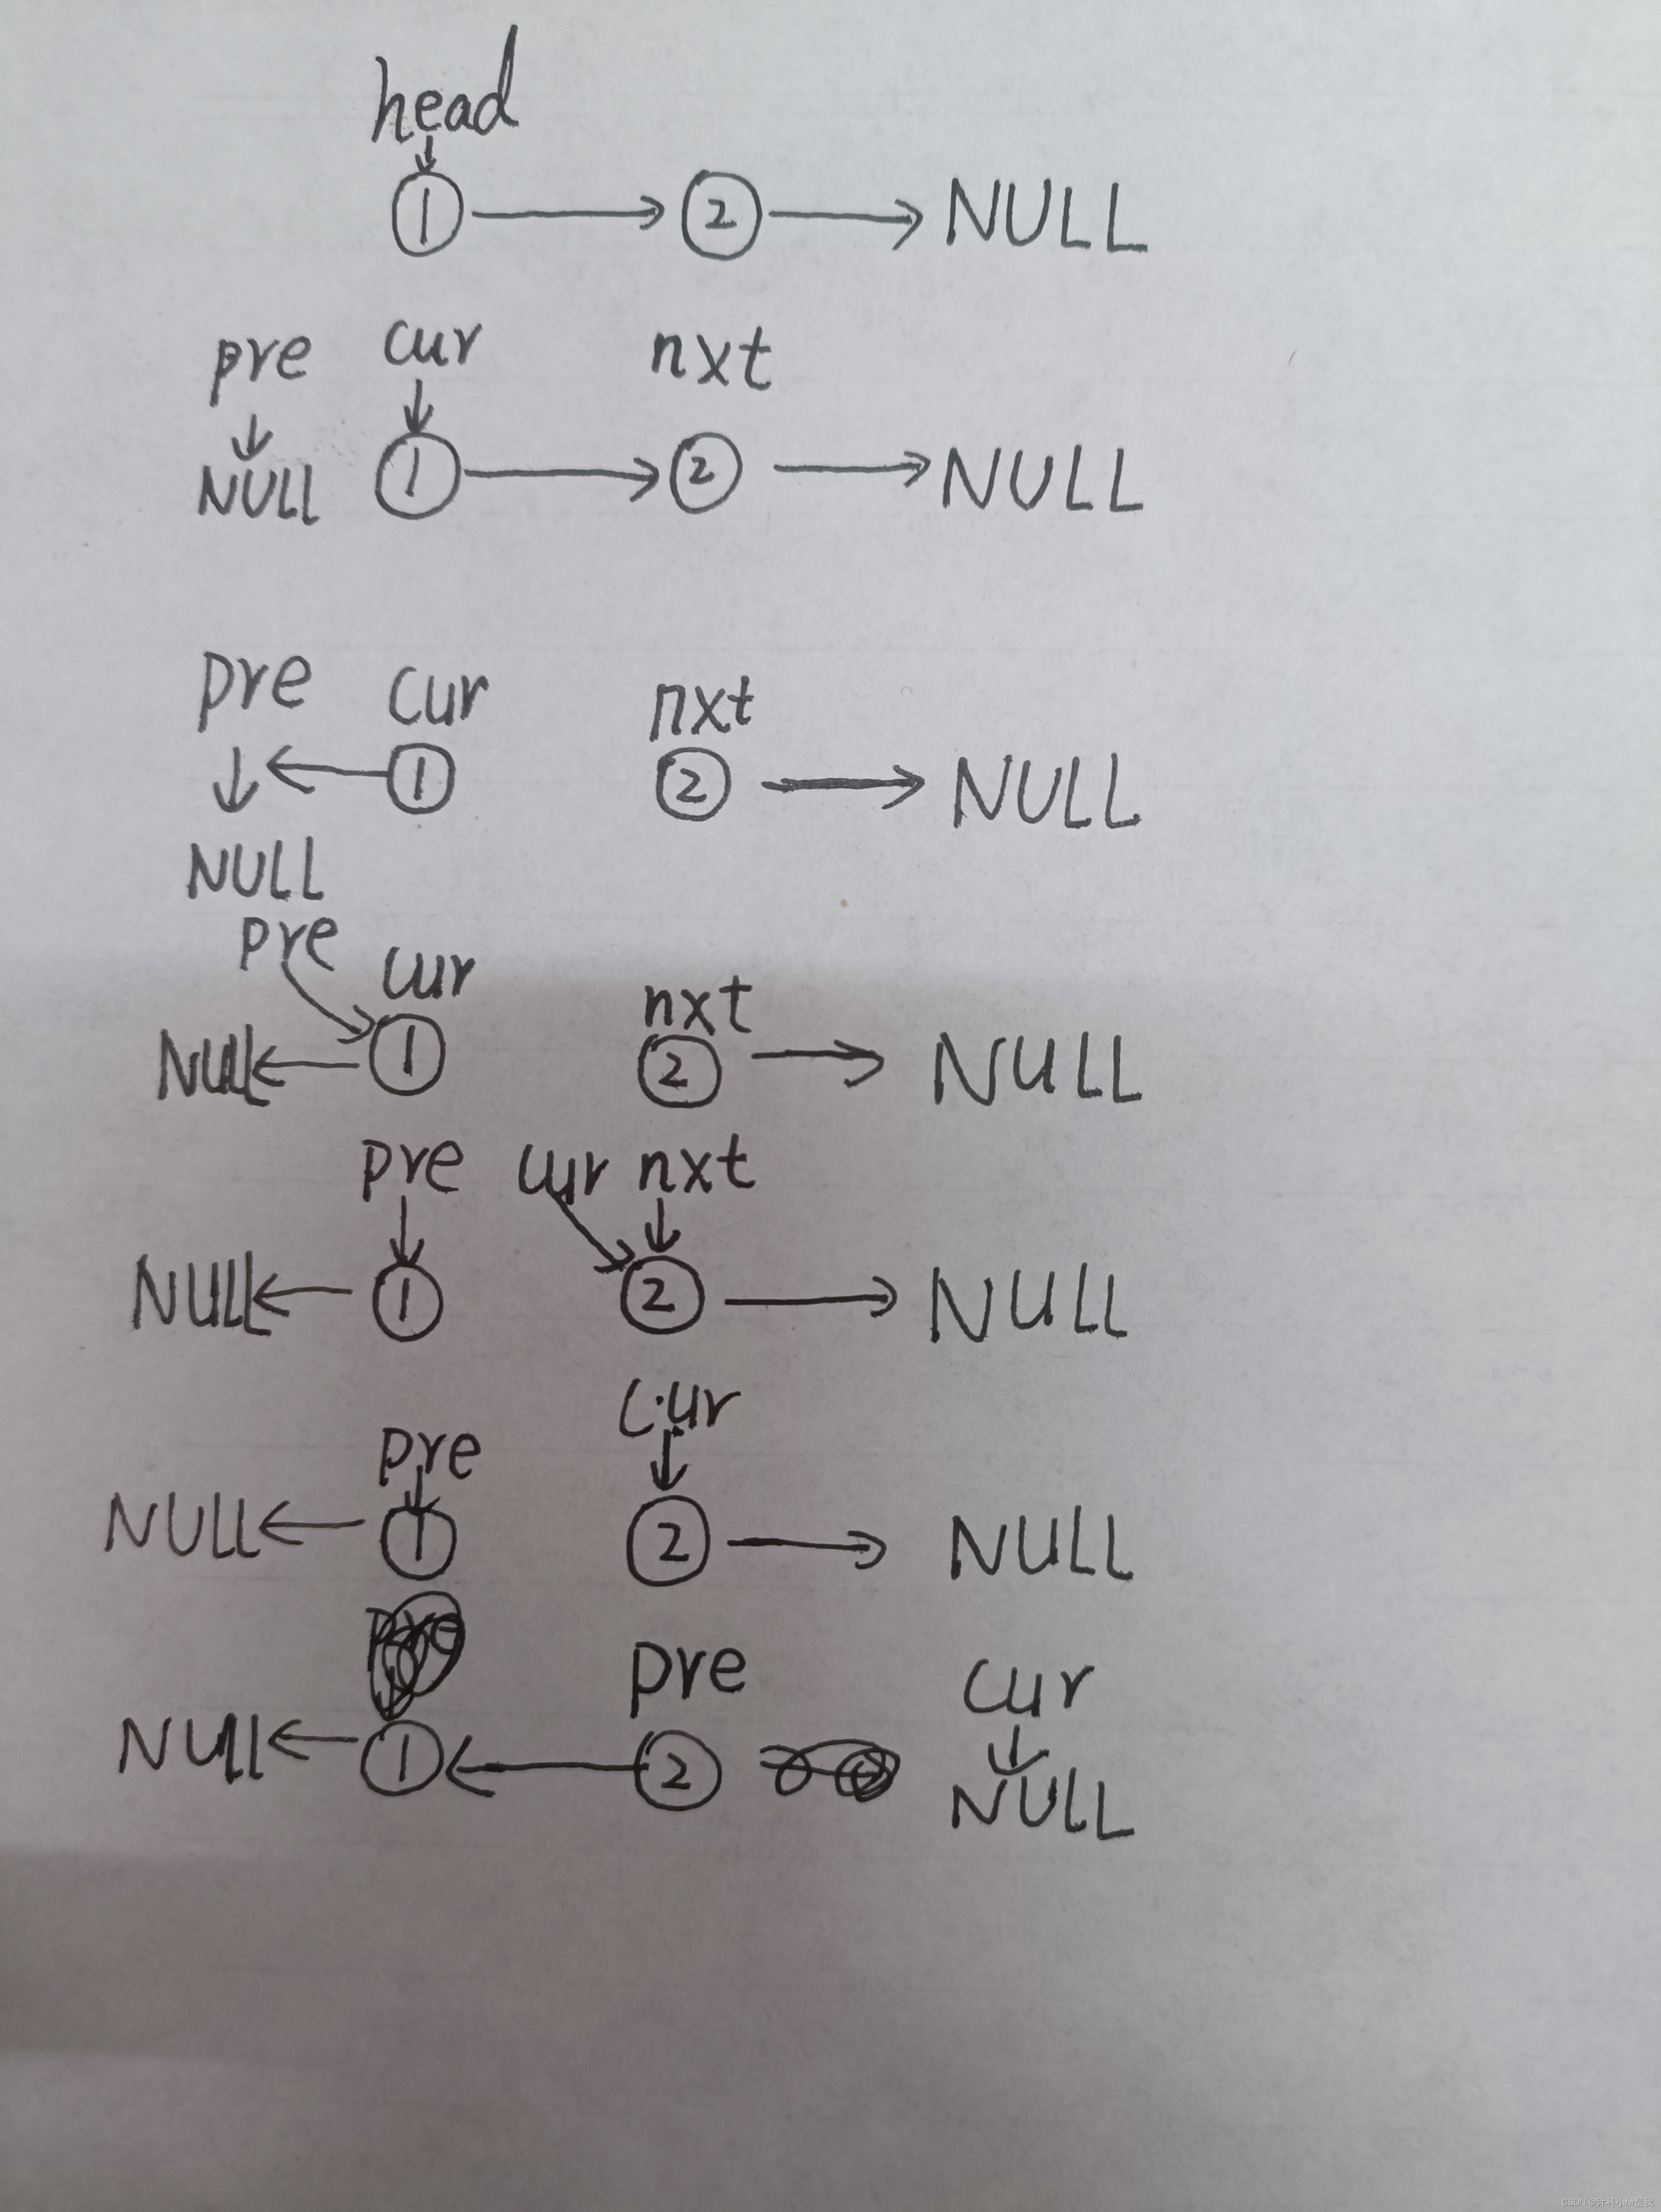 head
1 2 NULL
pre cur nxt
NULL 1 2 NULL
pre cur nxt
1 2 NULL
NULL
pre cur nxt
NULL 1 2 NULL
pre cur nxt
NULL 1 2 NULL
pre cur
NULL 1 2 NULL
pre cur
NULL 1 2 NULL